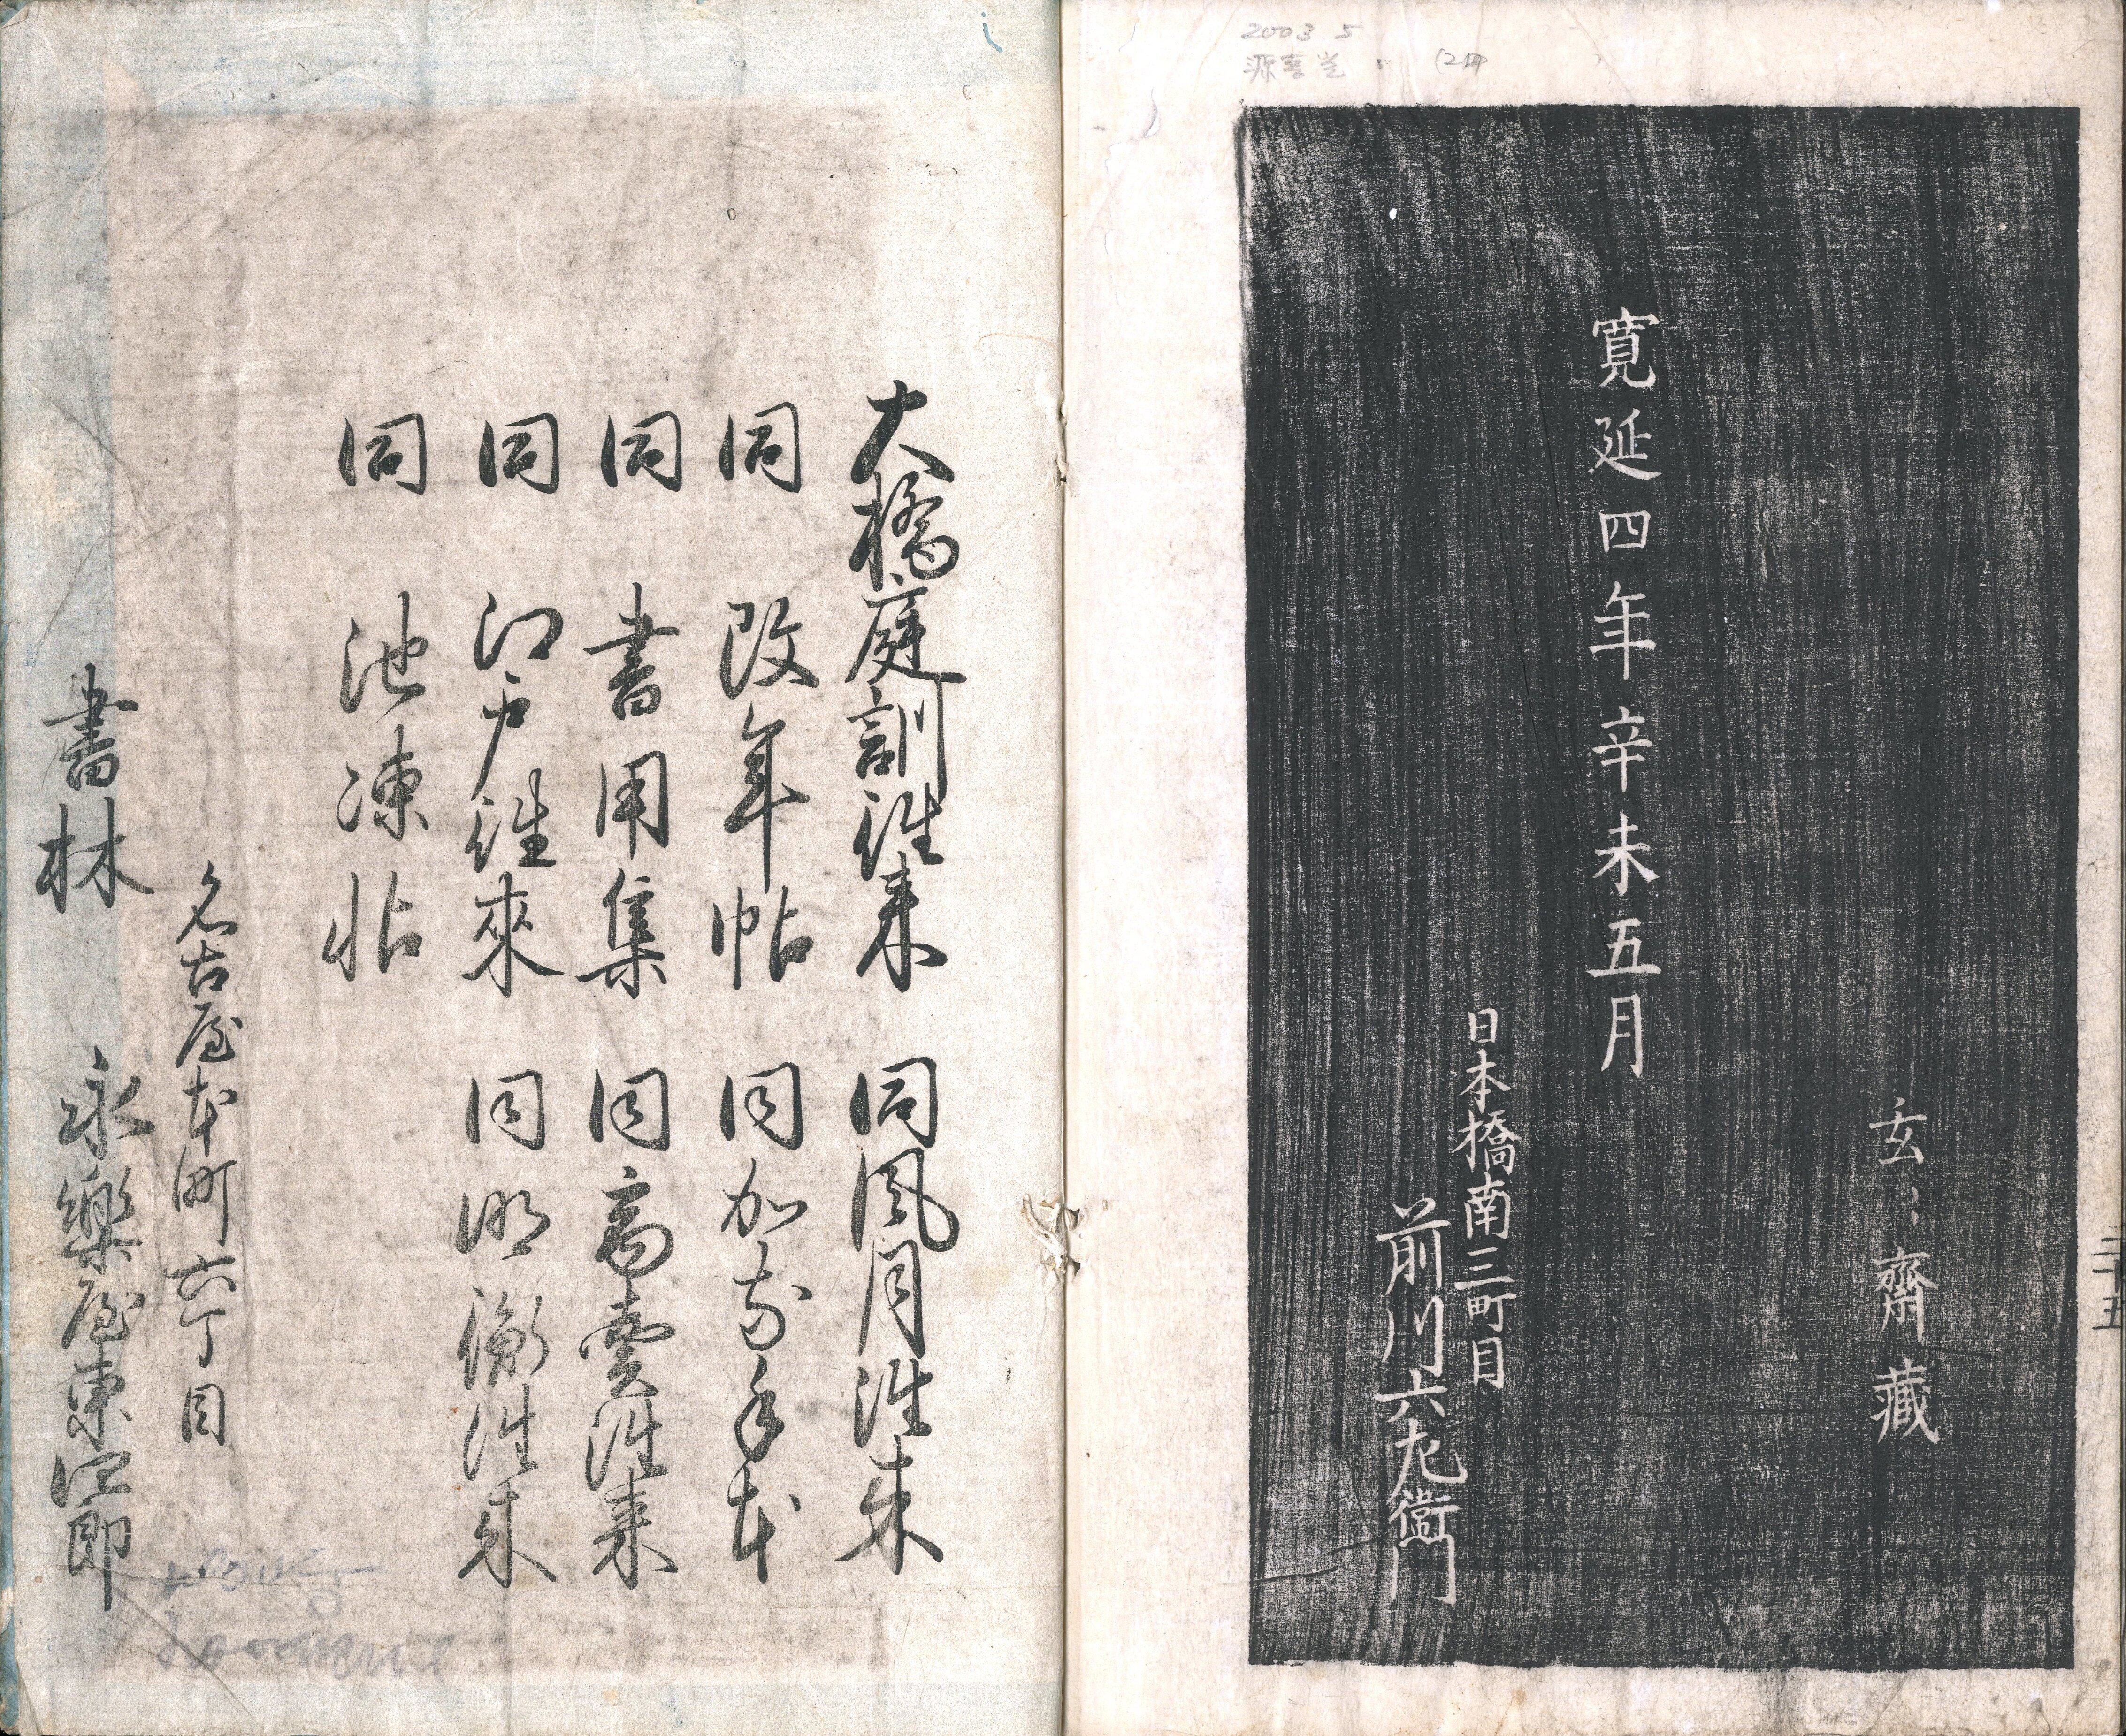 2003 5
源喜堂
12冊
玄々齋藏
寛延四年辛未五月
日本橋南三町目
前川六左衛門
三十五
大橋庭訓往来 同風月往来
同 改年帖 同加奈手本
同 書用集 同商賣往来
同 江戸往來 同明衡往来
同 池凍帖
名古屋本町六丁目
書林 永樂屋東四郎